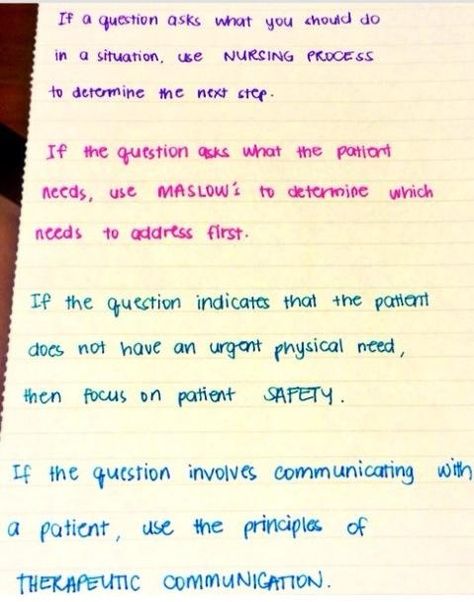 If a question asks what you should do
in a situation, use NURSING PROCESS
to determine the next step.
If the question asks what the patient
needs, use MASLOW's to determine which
needs to address first.
If the question indicates that the patient
does not have an urgent physical need,
then focus on patient SAFETY.
If the question involves communicating with
a patient, use the principles of
THERAPEUTIC COMMUNICATION.